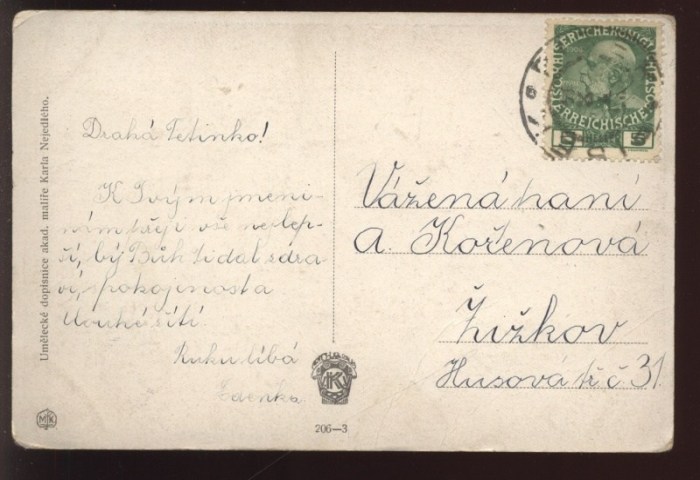 Umělecké dopisnice akad. malíře Karla Nejedlého.
Drahá Tetinko!
K Tvým jmeni-
nám přeji vše nejlep-
ší, by Bůh Ti dal zdra
ví, spokojenost a
dlouhé žití
Ruku líbá
Zdenka
MTK
206—3
KAISERLICHE KÖNIGLICHE
ÖSTERREICHISCHE
5 5
Vážená paní
A. Kořenová
Žižkov
Husová tř č 31